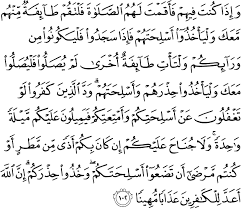 وَإِذَا كُنتَ فِيهِمْ فَأَقَمْتَ لَهُمُ ٱلصَّلَوٰةَ فَلْتَقُمْ طَآئِفَةٌ مِّنْهُم
مَّعَكَ وَلْيَأْخُذُوٓا۟ أَسْلِحَتَهُمْ فَإِذَا سَجَدُوا۟ فَلْيَكُونُوا۟ مِن
وَرَآئِكُمْ وَلْتَأْتِ طَآئِفَةٌ أُخْرَىٰ لَمْ يُصَلُّوا۟ فَلْيُصَلُّوا۟
مَعَكَ وَلْيَأْخُذُوا۟ حِذْرَهُمْ وَأَسْلِحَتَهُمْ ۗ وَدَّ ٱلَّذِينَ كَفَرُوا۟ لَوْ
تَغْفُلُونَ عَنْ أَسْلِحَتِكُمْ وَأَمْتِعَتِكُمْ فَيَمِيلُونَ عَلَيْكُم مَّيْلَةً
وَٰحِدَةً ۚ وَلَا جُنَاحَ عَلَيْكُمْ إِن كَانَ بِكُمْ أَذًى مِّن مَّطَرٍ أَوْ
كُنتُم مَّرْضَىٰٓ أَن تَضَعُوٓا۟ أَسْلِحَتَكُمْ ۖ وَخُذُوا۟ حِذْرَكُمْ ۗ إِنَّ ٱللَّهَ
أَعَدَّ لِلْكَٰفِرِينَ عَذَابًا مُّهِينًا ١٠٢